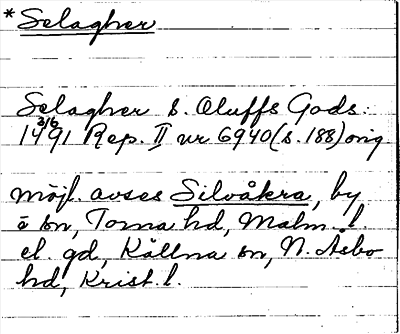 * Selagher
Selagher S. Oluffs Gods:
3/6
1491 Rep. II nr 6940 (s. 188) orig
möjl. avses Silvåkra, by
o sn, Torna hd, Malm. l.
el. gd, Källna sn, N. Åsbo
hd, Krist. l.